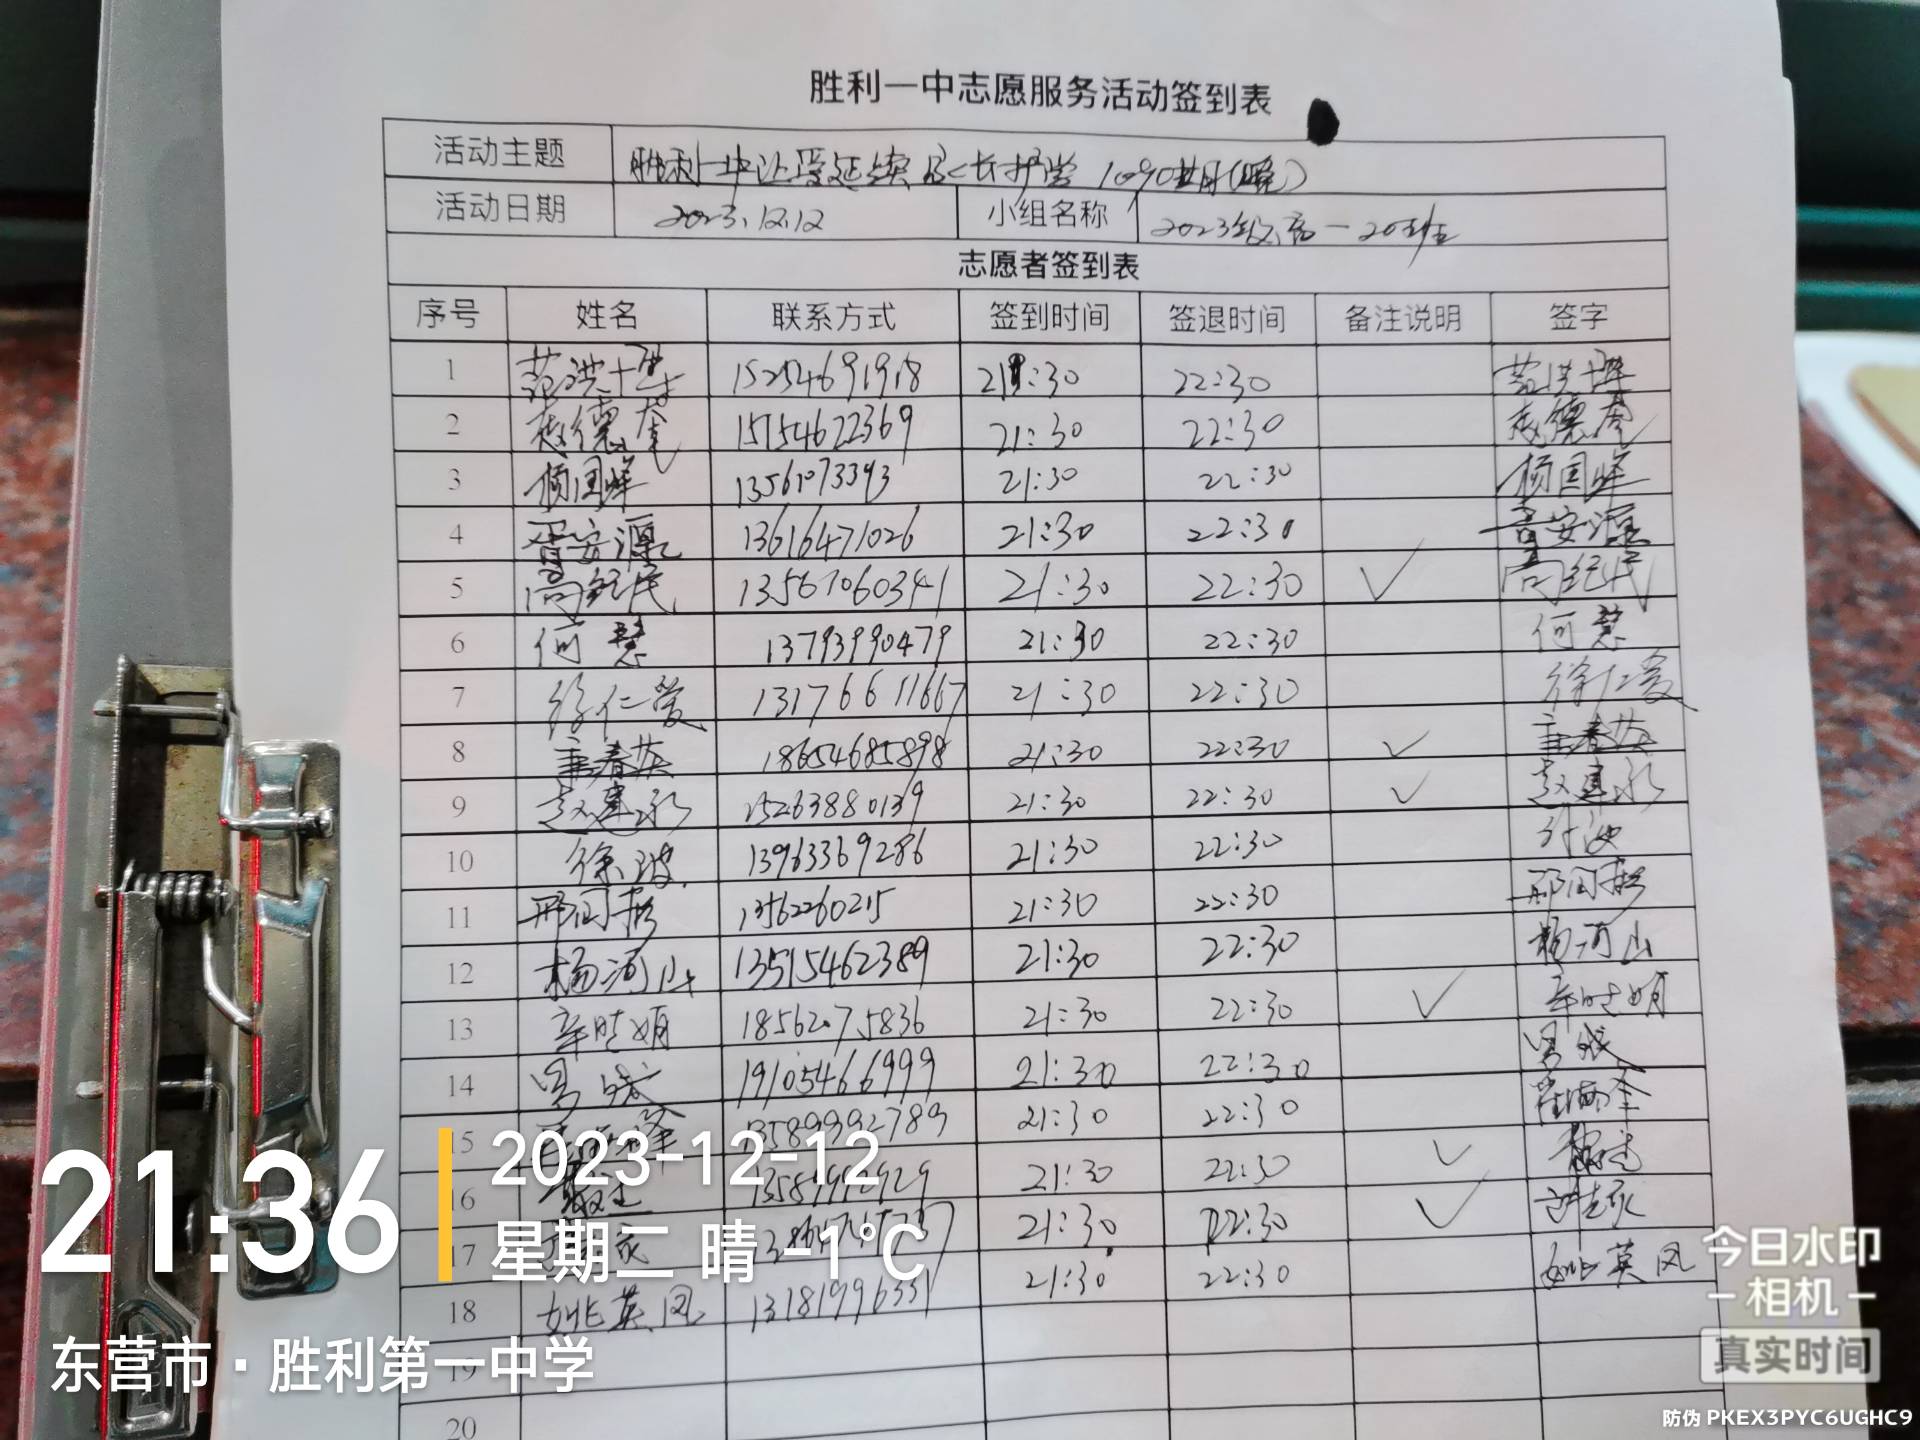 胜利一中志愿服务活动签到表
活动主题 胜利一中让爱延续家长护学1090期(晚)
活动日期 2023.12.12 小组名称 2023级高一20班
志愿者签到表
序号 姓名 联系方式 签到时间 签退时间 备注说明 签字
1 15254691918 21:30 22:30
2 15154622369 21:30 22:30
3 13561073393 21:30 22:30
4 胥安源 13616471026 21:30 22:30 胥安源
5 高纪民 13561060341 21:30 22:30 ✓ 高纪民
6 何慧 13793990479 21:30 22:30 何慧
7 徐仁爱 13176611667 21:30 22:30 徐仁爱
8 18654685898 21:30 22:30 ✓
9 赵建永 15263880139 21:30 22:30 ✓ 赵建永
10 徐波 13963369286 21:30 22:30
11 13562260215 21:30 22:30
12 杨河山 13515462389 21:30 22:30 杨河山
13 辛晓娟 18562075836 21:30 22:30 ✓ 辛晓娟
14 19105466999 21:30 22:30
15 13589992789 21:30 22:30
16 21:30 22:30 ✓
17 21:30 22:30 ✓
18 姚英凤 13181996331 21:30 22:30 姚英凤
19
20
21:36
2023-12-12
星期二 晴 -1℃
东营市·胜利第一中学
今日水印
相机
真实时间
防伪 PKEX3PYC6UGHC9